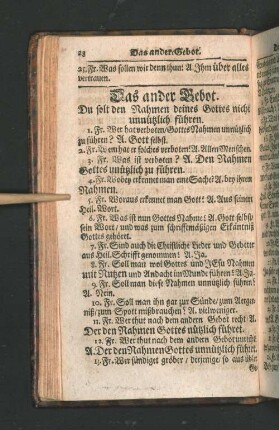 28 Das ander Gebot.
25. Fr. Was sollen wir denn thun? A. Ihm über alles
vertrauen.
Das ander Gebot.
Du solt den Nahmen deines Gottes nicht
unnützlich führen.
1. Fr. Wer hat verboten / Gottes Nahmen unnützlich
zu führen? A. Gott selbst.
2. Fr. Wem hat er solches verboten? A. Allen Menschen.
3. Fr. Was ist verboten? A. Den Nahmen
Gottes unützlich zu führen.
4. Fr. Wobey erkennet man eine Sache? A. bey ihrem
Nahmen.
5. Fr. Woraus erkennet man Gott? A. Aus seinem
Heil. Wort.
6. Fr. Was ist nun Gottes Nahme? A. Gott selbst /
sein Wort / und was zum schrifftmäßigen Erkäntniß
Gottes gehöret.
7. Fr. Sind auch die Christliche Lieder und Gebeter
aus Heil. Schrifft genommen? A. Ja.
8. Fr. Soll man wol Gottes und JEsu Nahmen
mit Nutzen und Andacht im Munde führen? A. Ja.
9. Fr. Soll man diese Nahmen unnützlich führen?
A. Nein.
10. Fr. Soll man ihn gar zur Sünde / zum Aerger-
niß / zum Spott mißbrauchen? A. vielweniger.
11. Fr. Wer thut nach dem andern Gebot recht? A.
Der den Nahmen Gottes nützlich führet.
12. Fr. Wer thut nach dem andern Gebot unrecht?
A. Der den Nahmen Gottes unnützlich führet.
13. Fr. Wer sündiget gröber / derjenige / so aus übler